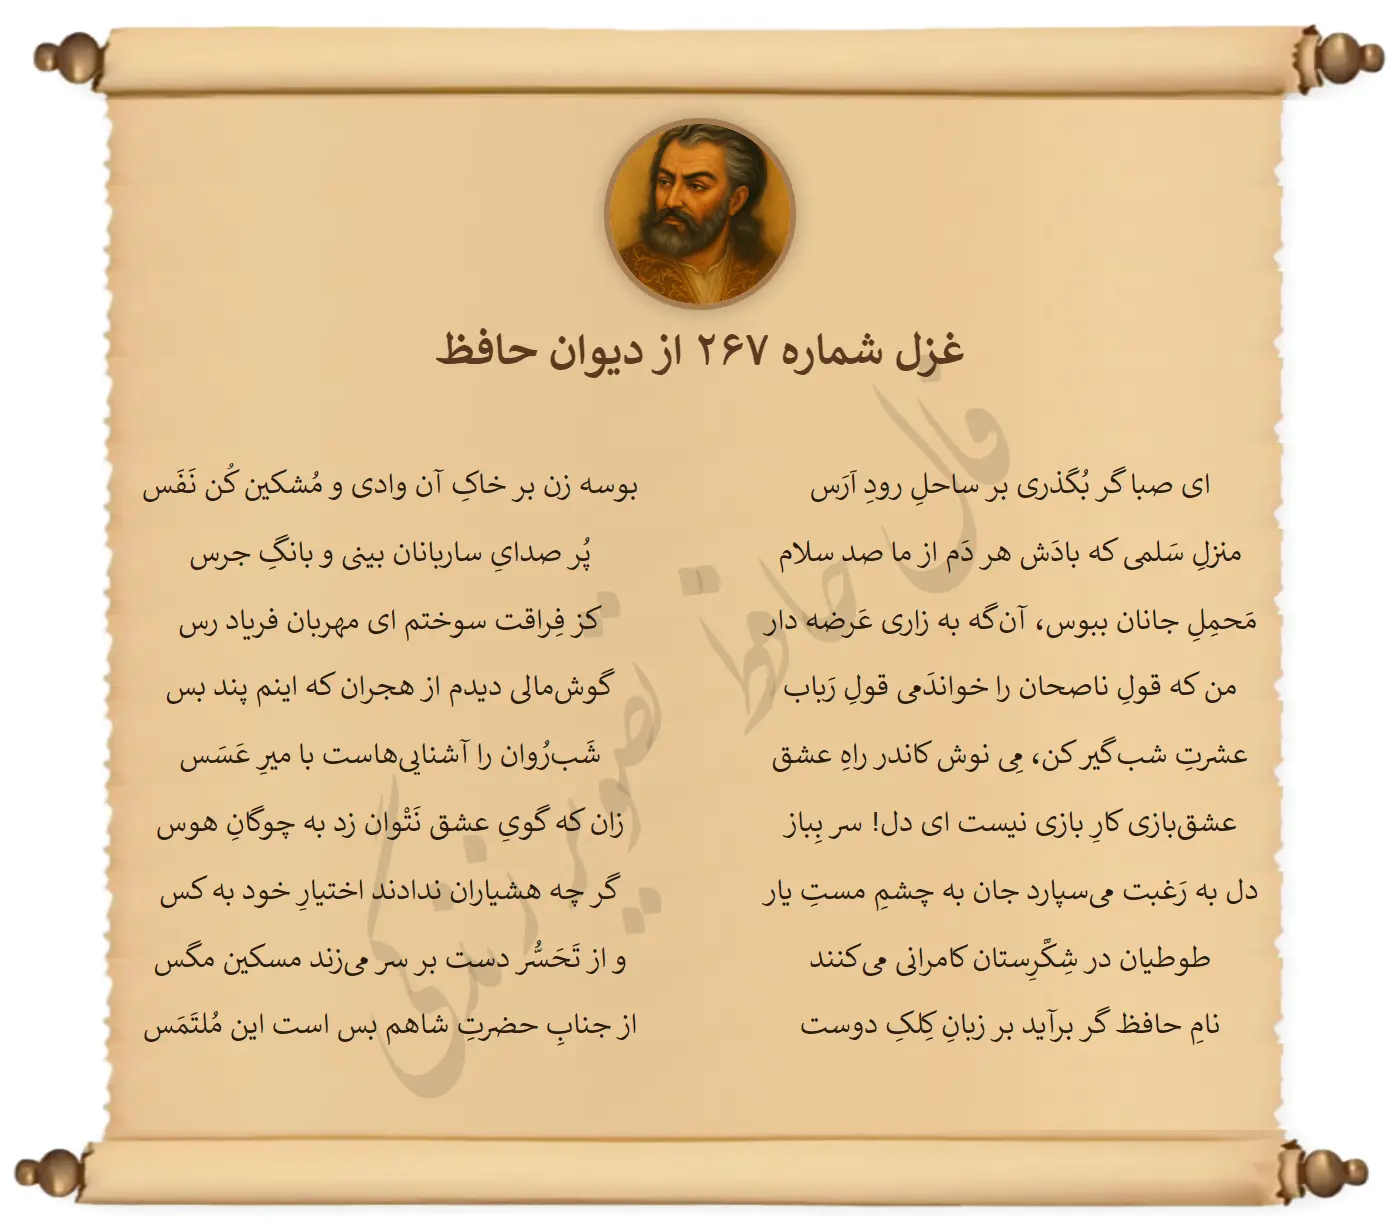 غزل شماره ۲۶۷ از دیوان حافظ
ای صبا گر بُگذری بر ساحلِ رودِ اَرَس
بوسه زن بر خاکِ آن وادی و مُشکین کُن نَفَس
منزلِ سَلمی که بادَش هر دَم از ما صد سلام
پُر صدایِ ساربانان بینی و بانگِ جرس
مَحمِلِ جانان ببوس، آن‌گه به زاری عَرضه دار
کز فِراقت سوختم ای مهربان فریاد رس
من که قولِ ناصحان را خواندَمی قولِ رَباب
گوش‌مالی دیدم از هجران که اینم پند بس
عشرتِ شب‌گیر کن، مِی نوش کاندر راهِ عشق
شَب‌رُوان را آشنایی‌هاست با میرِ عَسَس
عشق‌بازی کارِ بازی نیست ای دل! سر بِباز
زان که گویِ عشق نَتْوان زد به چوگانِ هوس
دل به رَغبت می‌سپارد جان به چشمِ مستِ یار
گر چه هشیاران ندادند اختیارِ خود به کس
طوطیان در شِکَّرِستان کامرانی می‌کنند
و از تَحَسُّر دست بر سر می‌زند مسکین مگس
نامِ حافظ گر برآید بر زبانِ کِلکِ دوست
از جنابِ حضرتِ شاهم بس است این مُلتَمَس
فال حافظ تصویر زندگی